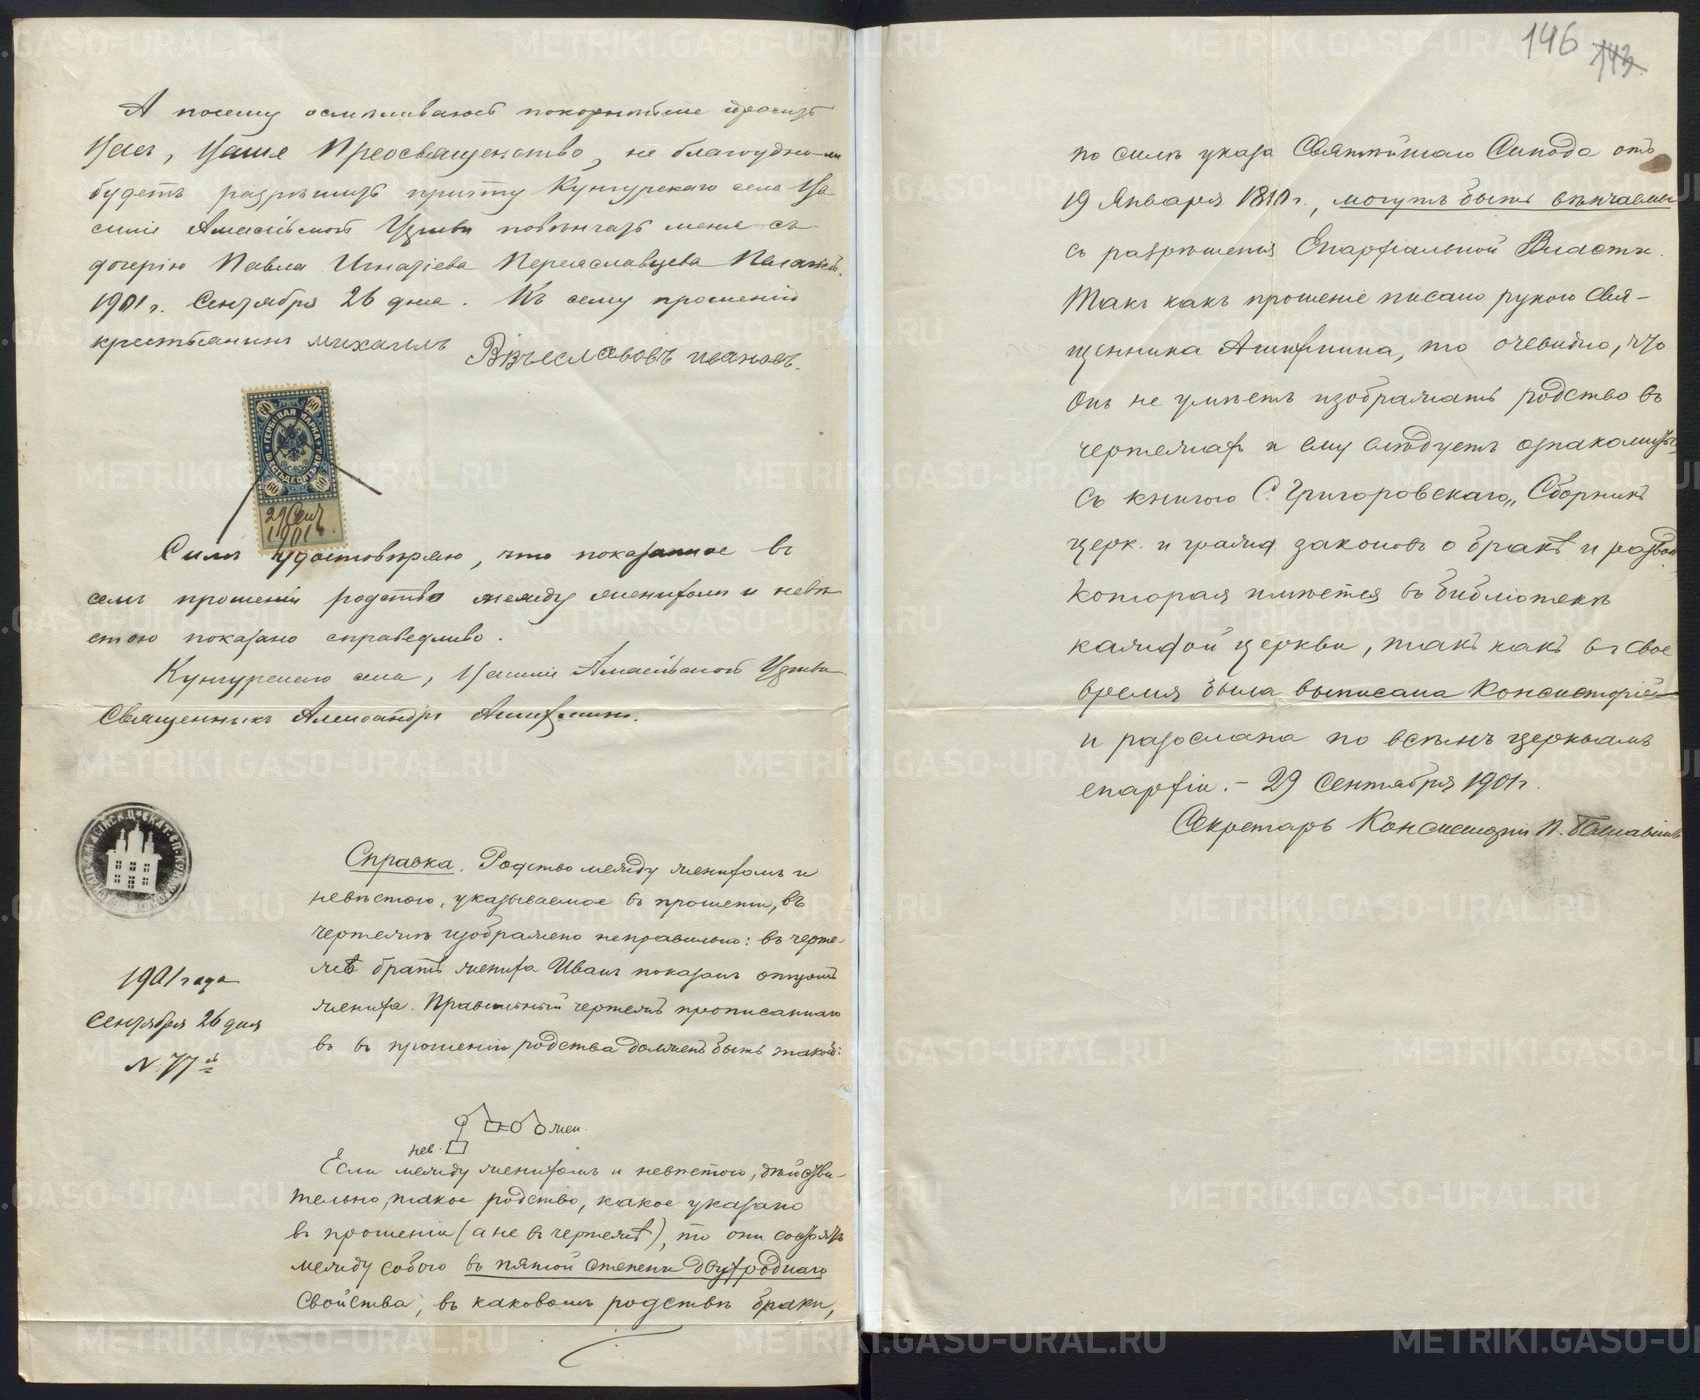 А посему осмѣливаюсь покорнѣйше просить
Васъ, Ваше Преосвященство, не благоугодно-ли
будетъ разрѣшить причту Кунгурскаго села Ва
силіе Амасійской Церкви повѣнчать меня съ
дочерію Павла Игнатіева Переяславцева
1901 г. Сентября 26 дня. Къ сему прошенію
крестьянинъ михаилъ ивановъ.
60 60
ГЕРБОВАЯ МАРКА
60 60
29 Сент
1901 г.
Симъ удостовѣряю, что показанное въ
семъ прошеніи родство между женихомъ и невѣ
стою показано справедливо.
Кунгурскаго села, Василіе Амасійской Церкви
Священникъ Александръ
1901 года
Сентября 26 дня
№ 77й
Справка. Родство между женихомъ и
невѣстою, указываемое въ прошеніи, въ
чертежѣ изображено неправильно: въ черте-
жѣ братъ жениха Иванъ показанъ отцомъ
жениха. Правильный чертежъ прописаннаго
въ въ прошеніи родства долженъ быть такой:
жен.
нев.
Если между женихомъ и невѣстою, дѣйстви-
тельно, такое родство, какое указано
въ прошеніи (а не въ чертежѣ), то они состоятъ
между собою въ пятой степени двухроднаго
свойства, въ каковомъ родствѣ браки,
146 143
по силѣ указа Святѣйшаго Синода отъ
19 Января 1810 г., могутъ быть вѣнчаемы
съ разрѣшенія Епархіальной Власти.
Такъ какъ прошеніе писано рукою Свя-
щенника то очевидно, что
онъ не умѣетъ изображать родство въ
чертежахъ и ему слѣдуетъ ознакомиться
съ книгою С. Григоровскаго „Сборникъ
церк. и гражд. законовъ о бракѣ и разводѣ
которая имѣется въ библіотекѣ
каждой церкви, такъ какъ въ свое
время была выписана Консисторіей
и разослана по всѣмъ церквамъ
епархіи. – 29 Сентября 1901 г.
Секретарь Консисторіи П.
METRIKI.GASO-URAL.RU